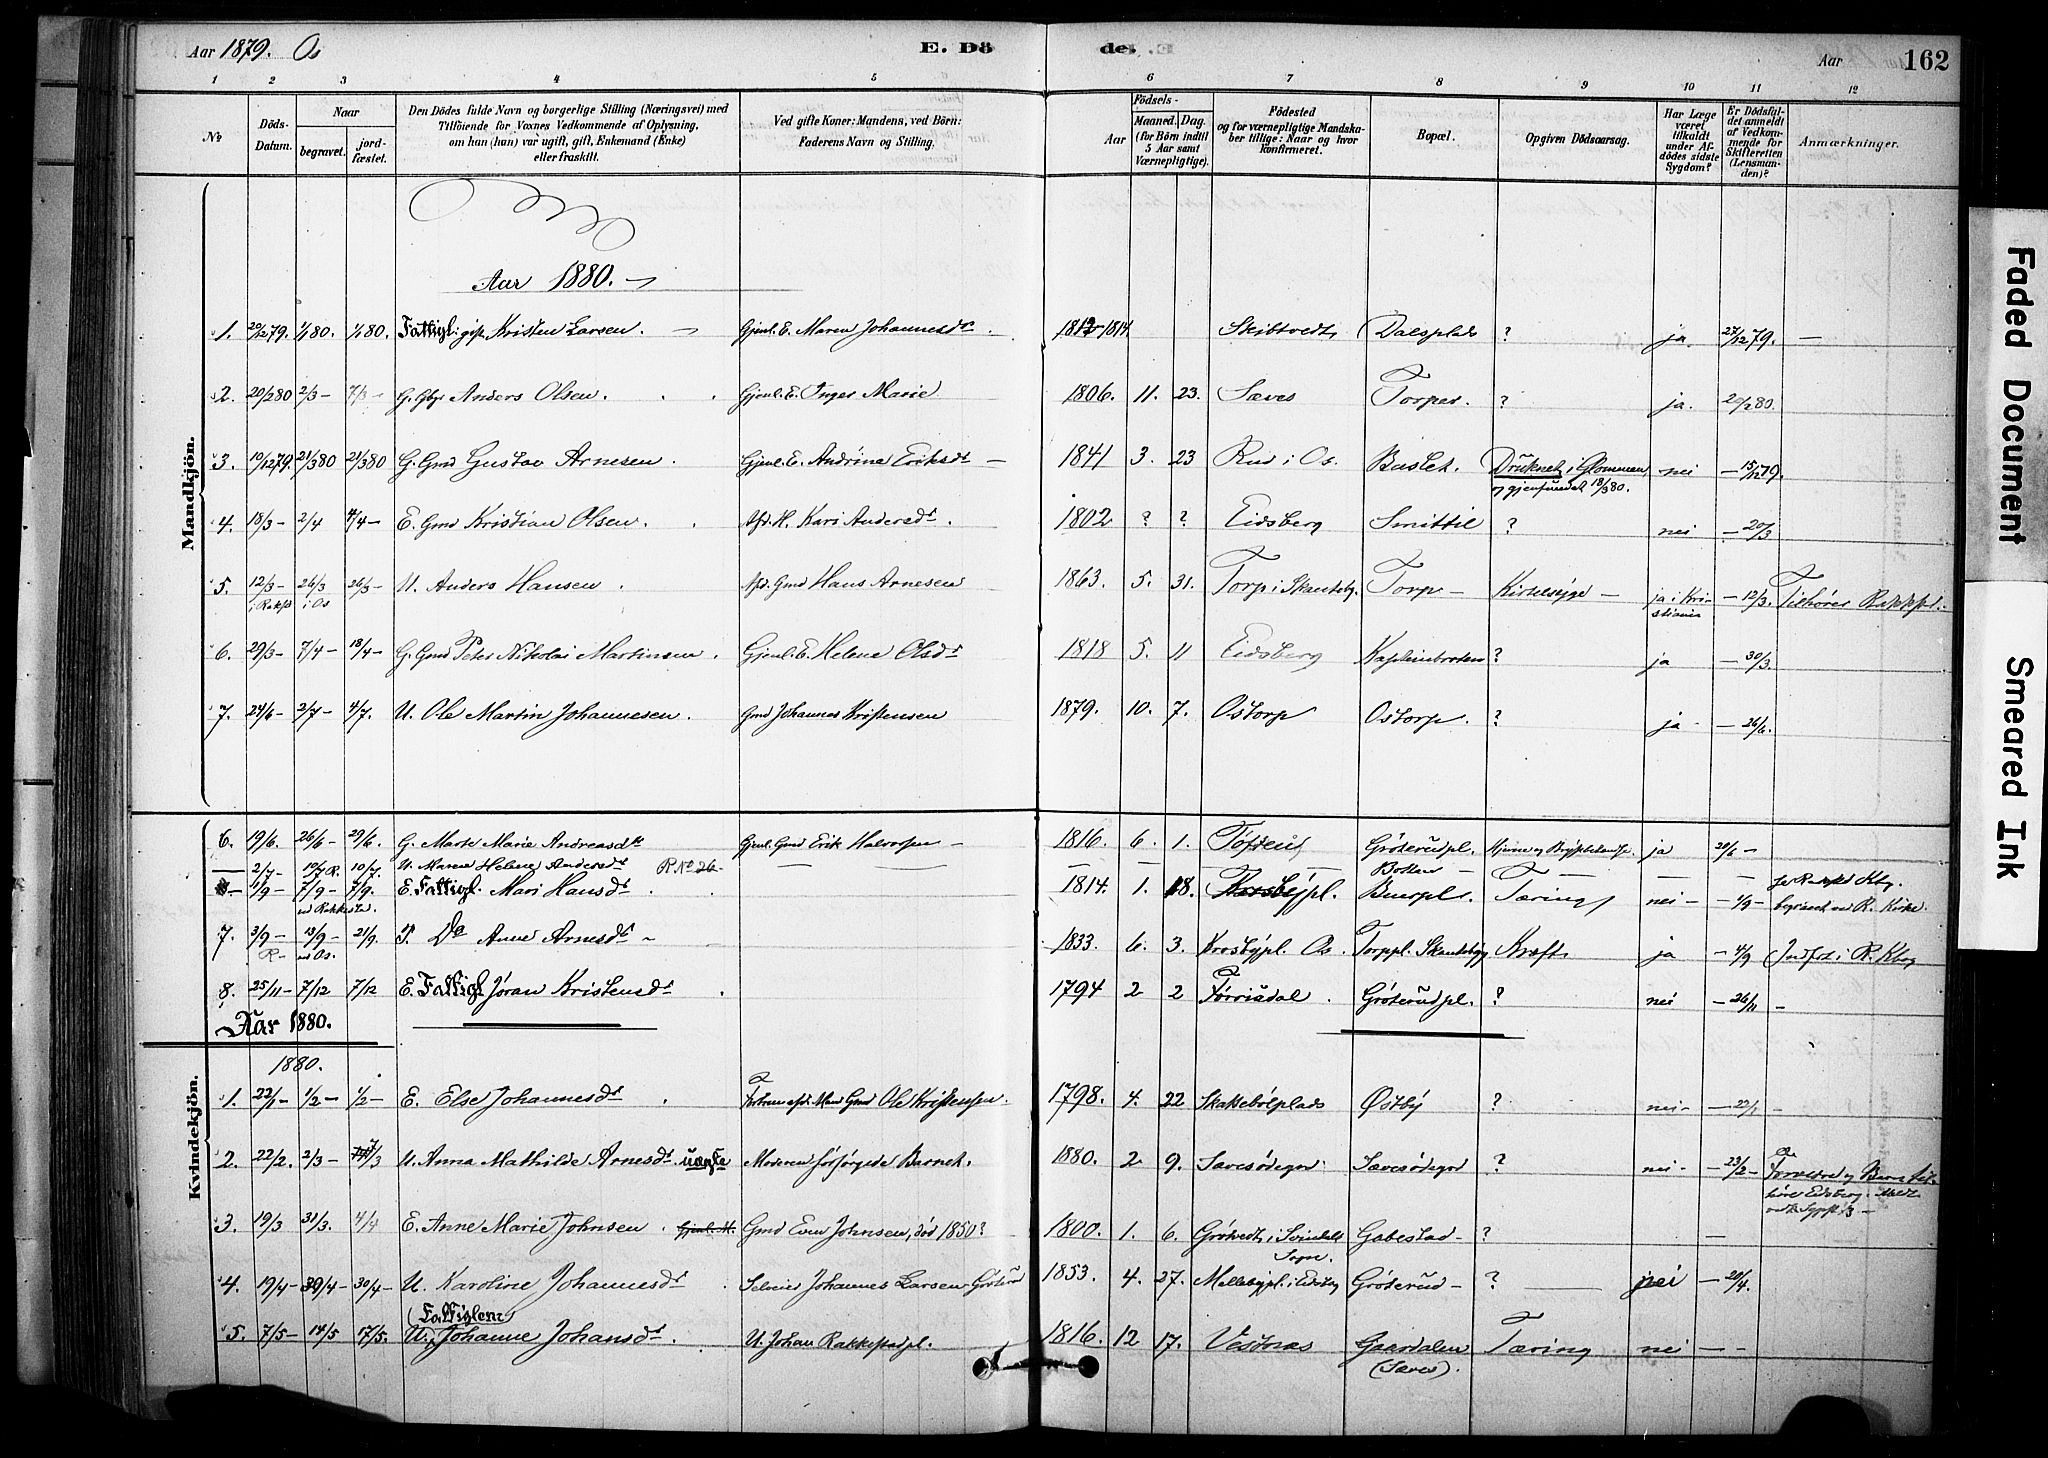 Aar 1879. Os E. Dö de. Aar 162
1 2 3 4 5 6 7 8 9 10 11 12
No Döds-Datum. Naar begravet. jordfæstet. Den Dödes fulde Navn og borgerlige Stilling (Næringsvei) med Tilföiende for Voxnes Vedkommende af Oplysning, om han (hun) var ugift, gift, Enkemand (Enke) eller fraskilt. Ved gifte Koner: Mandens, ved Börn: Faderens Navn og Stilling. Aar Födsels-Maaned. Dag. (for Börn indtil 5 Aar samt Værnepligtige). Födested og for værnepligtige Mandskaber tillige: Naar og hvor konfirmeret. Bopæl. Opgiven Dödsaarsag. Har Læge været tilkaldt under Afdödes sidste Sygdom? Er Dödsfaldet anmeldt af Vedkommende for Skifteretten (Lensmanden)? Anmærkninger.
Mandkjön.
Aar 1880.
1. 20/12 79. 1/1 80. 1/1 80. Fattigl: gift Kristen Larsen. Gjenl. E. Maren Johannesdr. 1812-1814 Skibtvedt Dalsplads ? ja 27/12 79. —
2. 20/2 80 2/3 — 7/3 — G. Gbr. Anders Olsen. Gjenl. E. Inger Marie 1806. 11. 23. Sæves Torper. ? ja. 20/2 80.
3. 10/12 79. 21/3 80 21/3 80 G. Gmd Gustav Arnesen. Gjenl. E. Andrine Eriksdr — 1841 3. 23 Rud i Os. Baslet. Druknet i Glommen nei — 15/12 79.
og gjenfundet 18/3 80.
4. 18/3 — 2/4 4/4 — E. Gmd Kristian Olsen. Afd. H. Kari Andersdr. 1802 ? ? Eidsberg Smittil ? nei — 20/3
5. 12/3 — 26/3 26/3 — U. Anders Hansen. Afd. Gmd Hans Arnesen 1863. 5. 31. Torp i Skautsby. Torp — Kirtelsyge — ja i Kristiania — 12/3. Tilhörer Rakkst.
i Rakst i Os
6. 29/3 — 7/4 — 18/4 — G. Gmd Peter Nikolai Martinsen. Gjenl. E. Helene Olsdr 1818 5. 11 Eidsberg Kapteinbraten ? ja — 30/3.
7. 24/6 — 2/7 — 4/7. U. Ole Martin Johannesen. Gmd Johannes Kristensen 1879. 10. 7. Ostorp Ostorp. ? ja — — 26/6.
6. 19/6. 26/6 — 29/6. G. Marte Marie Andreasdr Gjenl. Gmd Erik Halvorsen — 1816. 6. 1. Gröterudpl. ja 20/6 —
— 2/7 — 10/7 R. 10/7. U. Maren Helene Andersdr R. No 26
— 1/9 — 7/9 — 7/9. E. Fattigl. Mari Hansdr. 1814. 1. 18. Brosbypl. Tæring nei — — 1/9 —
ved Rakkestad.
7. 3/9 — 13/9 — 21/9. Do Anne Arnesdr 1833. 6. 3. Krosbypl. Os. Torppl. Skautsby Kræft ja — 4/9 Indfört i R. Kbog
R — ved Os.
8. 25/11 — 7/12 7/12 E. Fattigl. Jöran Kristensdr. 1794 2 2 Förrisdal. Gröterudpl. ? nei — 26/11 —
Aar 1880.
Kvindekjön.
1880.
1. 22/1 — 1/2 — 1/2 — E. Else Johannesdr. Forhen afd. Mand Gmd Ole Kristensen. 1798. 4. 22 Skakkebölplads Østby ? nei — — 22/1 —
2. 22/2. 2/3 — 7/3 U. Anna Mathilde Arnesdr uægte Moderen forsörgede Barnet. 1880. 2 9. Sævesödegor Sævesödegor ? nei — — 23/2 —
3. 19/3 31/3. 4/4 E. Anne Marie Johnsen. Gjenl. M. Gmd Even Johnsen, död 1850? 1800. 1. 6. Grötvedt i Svindals Sogn. Gabestad — ? —
4. 19/4 — 30/4 — 30/4 — U. Karoline Johannesdr Johannes Larsen Gröterud 1853. 4. 27. Mellebypl. i Eidsberg Gröterud — ? — nei — 20/4.
5. 7/5 — 14/5 17/5. Fattiglem U. Johanne Johansdr. U. Johan Rakkestadpl. 1816. 12 17. Vestnæs Gaardalen Tæring nei — —
(Sæves).
Faded Document Smeared Ink